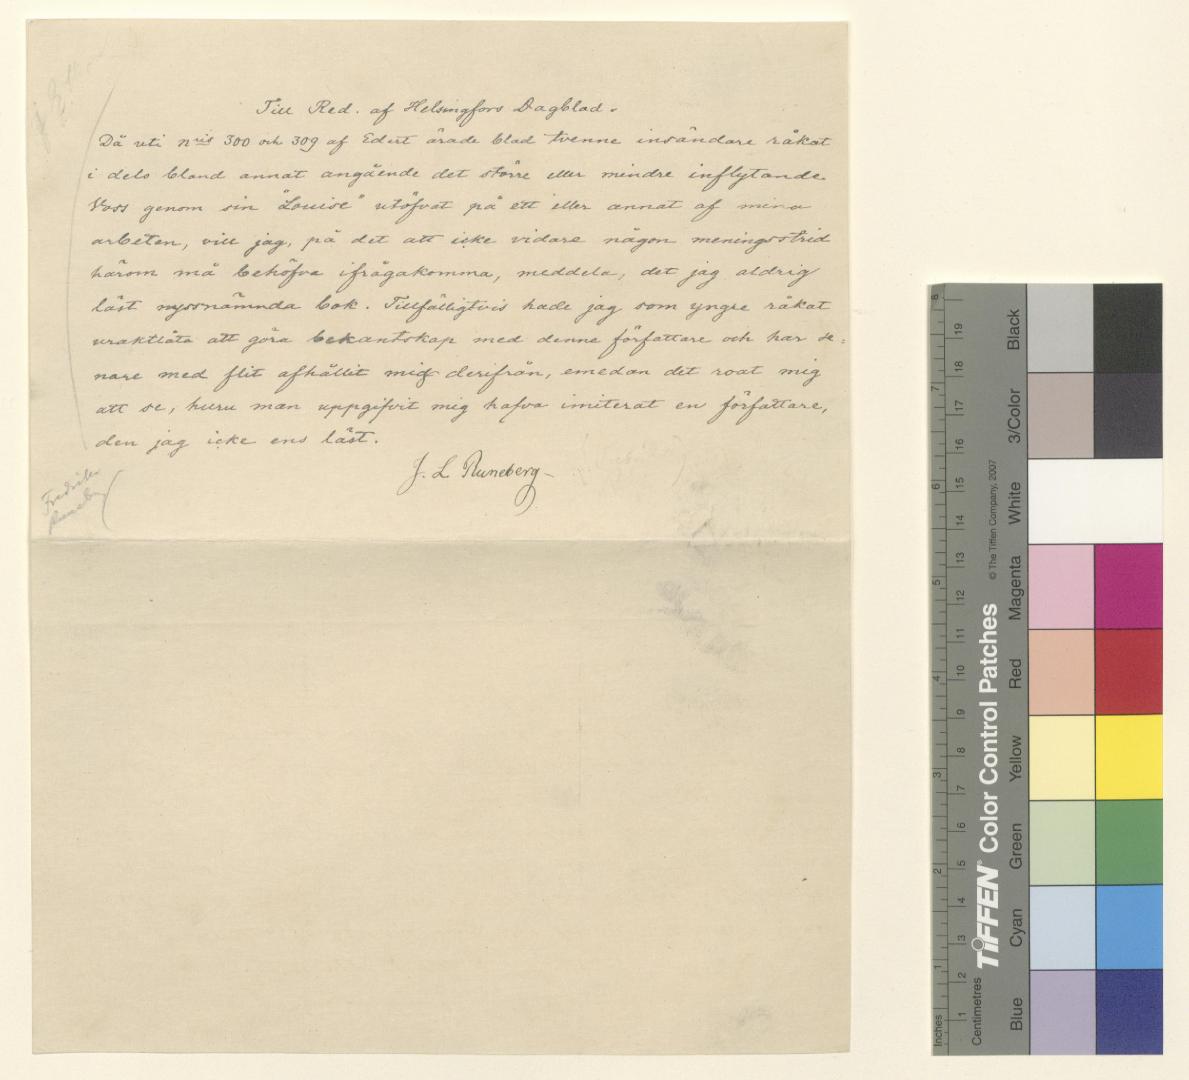 Till Red. af Helsingfors Dagblad.
Då uti n:ris 300 och 309 af Edert ärade blad tvenne insändare råkat
i delo bland annat angående det större eller mindre inflytande
Voss genom sin "Louise" utöfvat på ett eller annat af mina
arbeten, vill jag, på det att icke vidare någon meningsstrid
härom må behöfva ifrågakomma, meddela, det jag aldrig
läst nyssnämnda bok. Tillfälligtvis hade jag som yngre råkat
uraktlåta att göra bekantskap med denne författare och har se=
nare med flit afhållit mig derifrån, emedan det roat mig
att se, huru man uppgifvit mig hafva imiterat en författare,
den jag icke ens läst.
J. L. Runeberg
Fredrika
Runeberg
Inches
Centimetres
TIFFEN Color Control Patches
© The Tiffen Company, 2007
Blue
Cyan
Green
Yellow
Red
Magenta
White
3/Color
Black
1 2 3 4 5 6 7 8
1 2 3 4 5 6 7 8 9 10 11 12 13 14 15 16 17 18 19